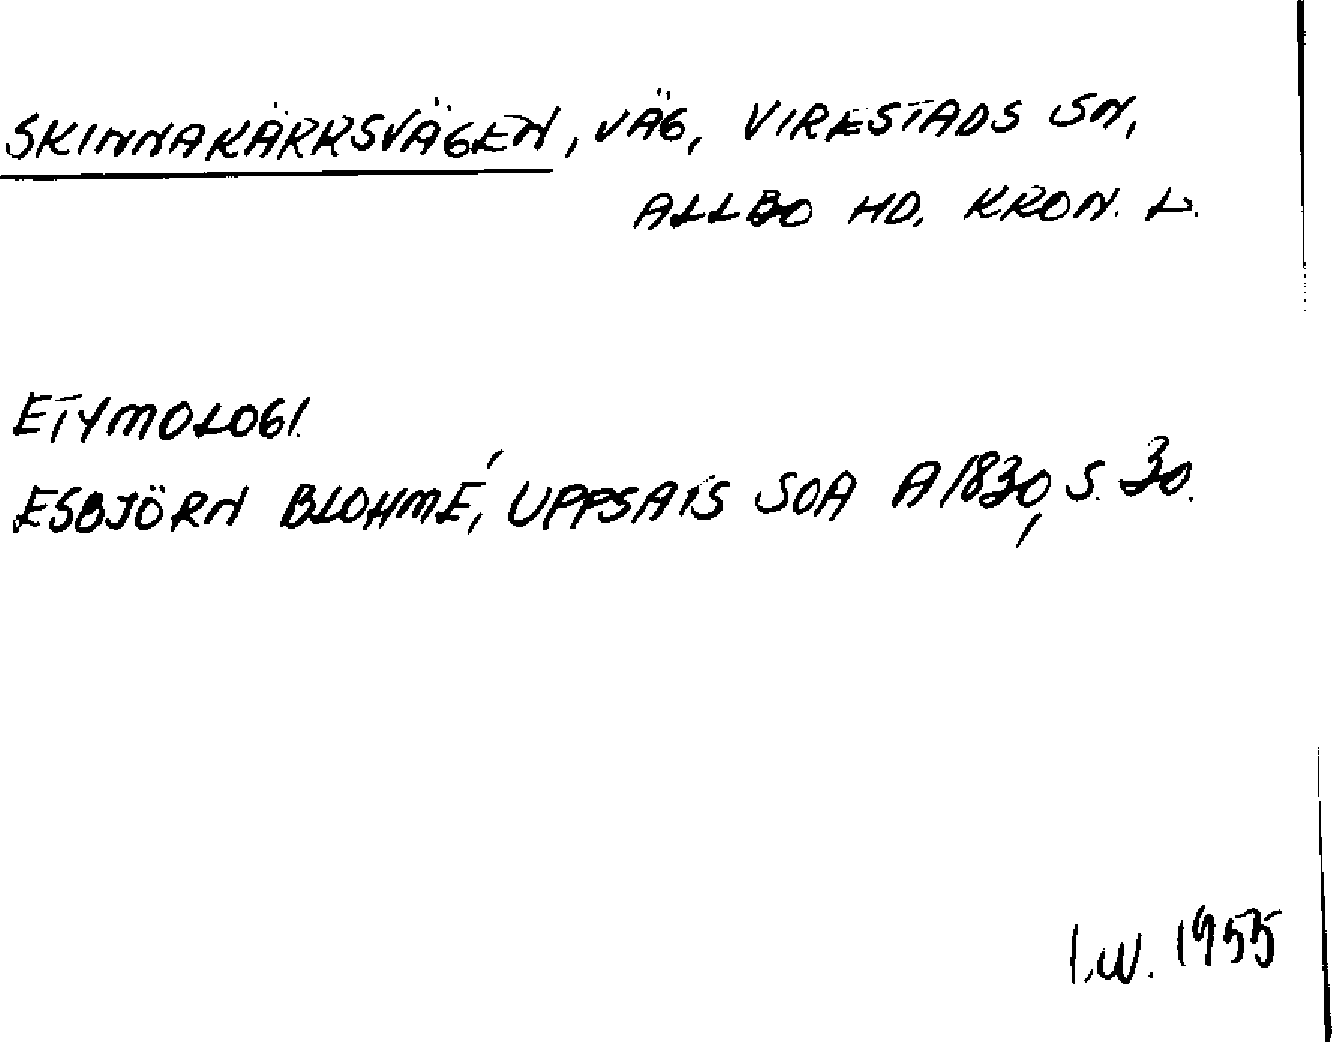 SKINNAKÄRRSVÄGEN, VÄG, VIRESTADS SN,
ALLBO HD. KRON. L.
ETYMOLOGI.
ESBJÖRN BLOHMÉ, UPPSATS SOA A 1830, S. 30.
I.W. 1955